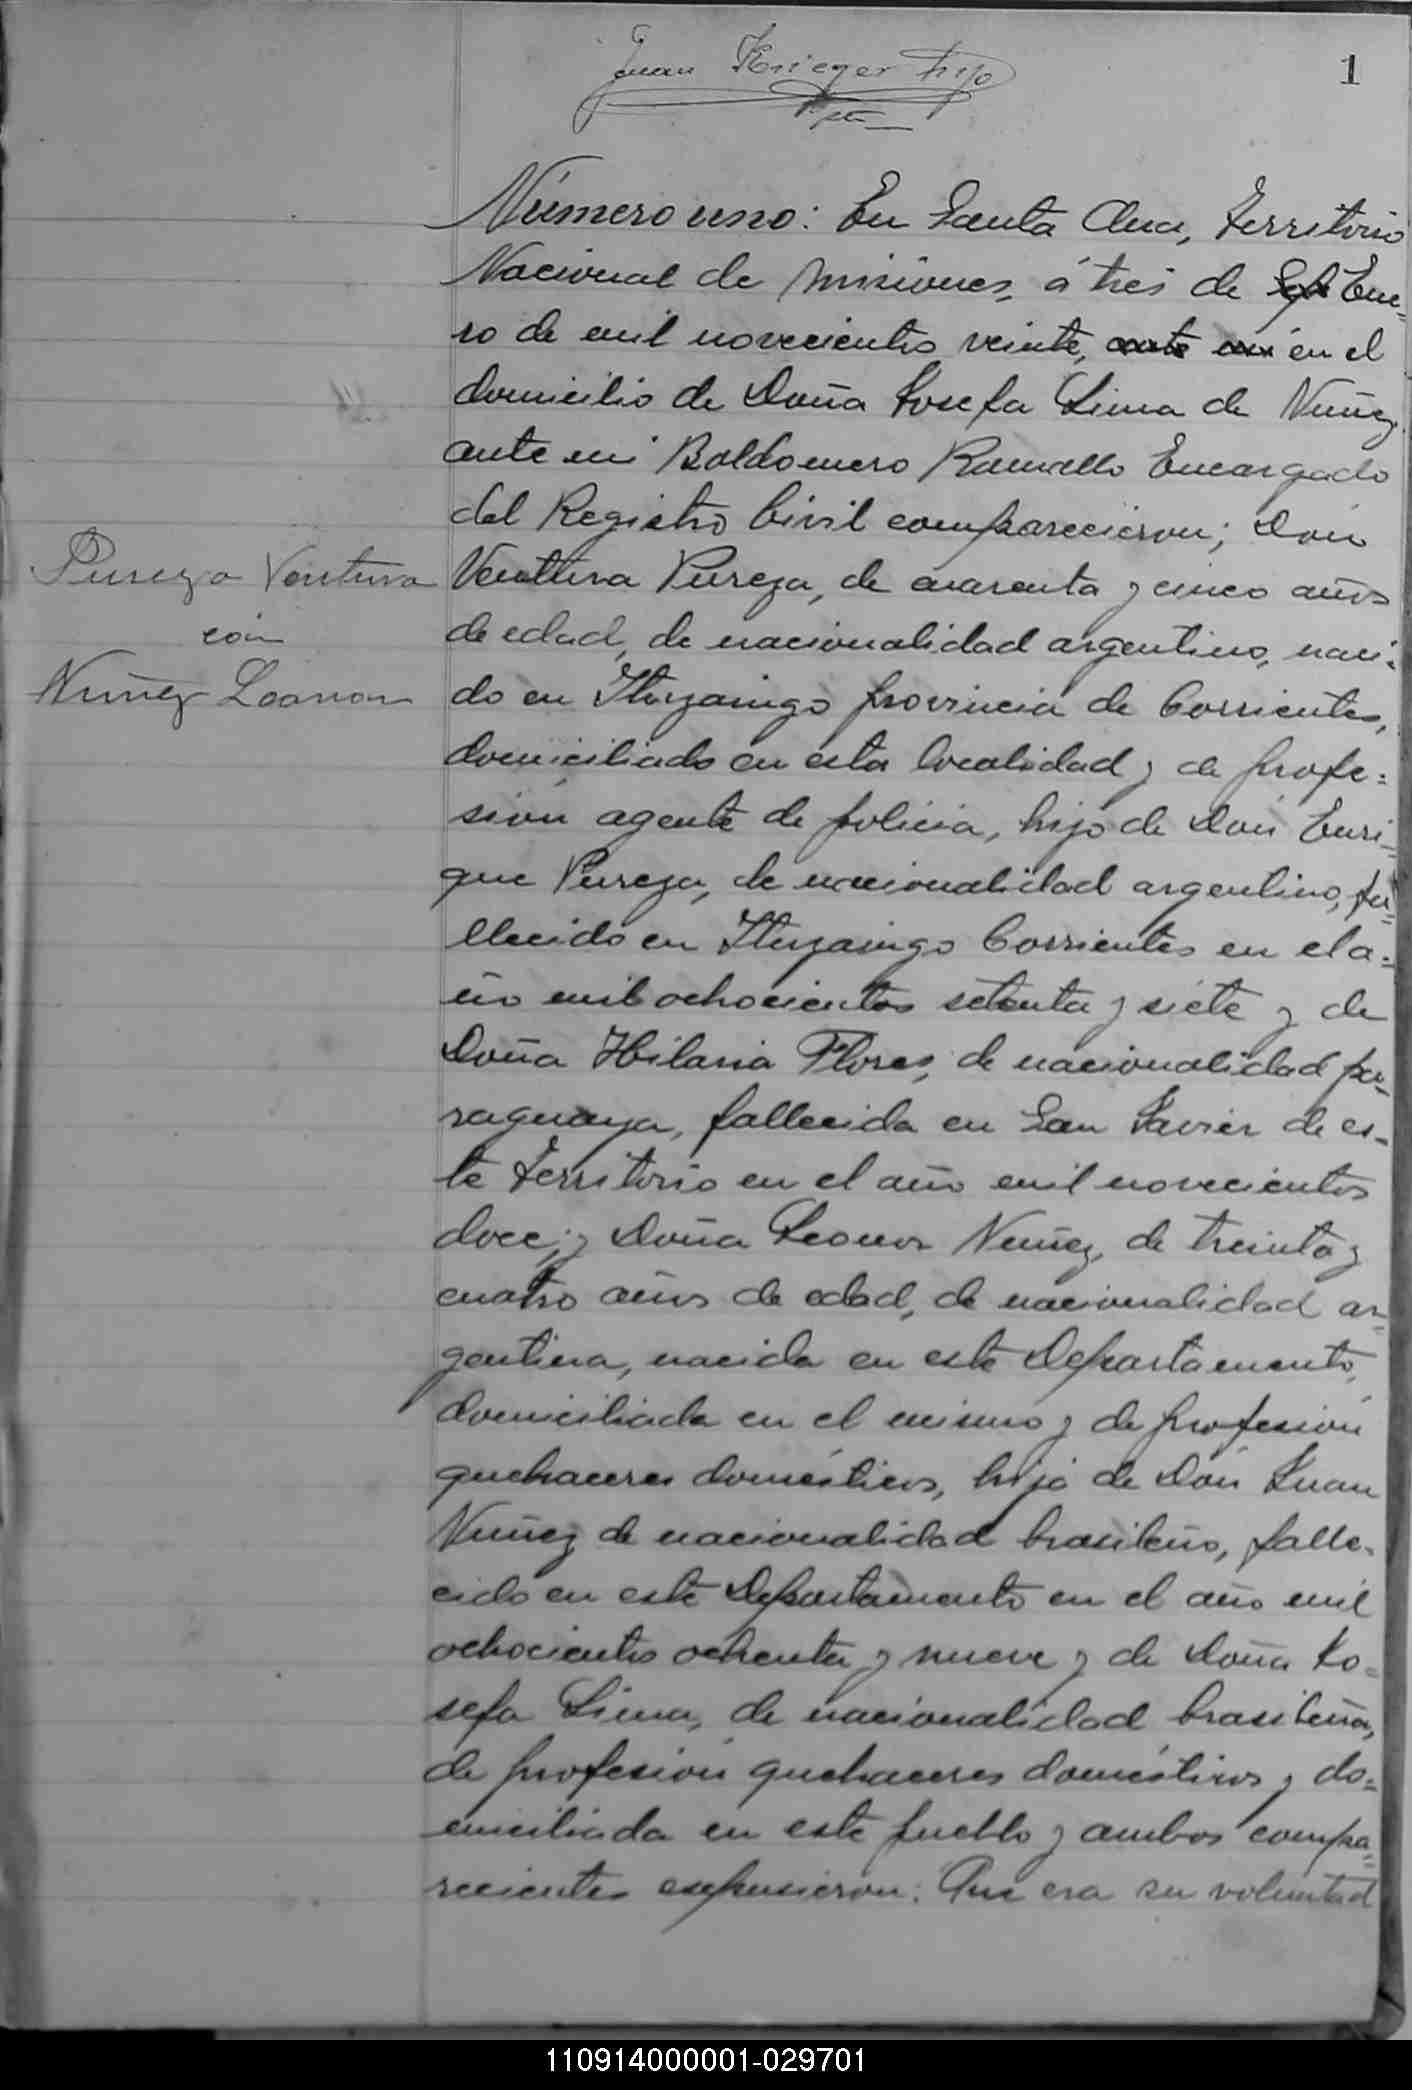 Juan Krieger hijo
1
Número uno: En Santa Ana, Territorio
Nacional de Misiones, á tres de Ene=
ro de mil novecientos veinte, ante mi en el
domicilio de Doña Josefa Lima de Nuñez
ante mi Baldomero Ramallo Encargado
del Registro Civil comparecieron; Don
Pureza Ventura
Ventura Pureza, de cuarenta y cinco años
con
de edad, de nacionalidad argentino, naci=
Nuñez Leonor
do en Ituzaingo provincia de Corrientes,
domiciliado en esta localidad y de profe=
sión agente de policia, hijo de Don Enri=
que Pureza, de nacionalidad argentino, fa=
llecido en Ituzaingo Corrientes en el a=
ño mil ochocientos setenta y siete y de
Doña Hilaria Flores, de nacionalidad pa=
raguaya, fallecida en San Javier de es=
te Territorio en el año mil novecientos
doce; y Doña Leonor Nuñez, de treinta y
cuatro años de edad, de nacionalidad ar=
gentina, nacida en este Departamento,
domiciliada en el mismo y de profesión
quehaceres domésticos, hija de Don Juan
Nuñez de nacionalidad brasileño, falle=
cido en este Departamento en el año mil
ochocientos ochenta y nueve y de Doña Jo=
sefa Lima, de nacionalidad brasileña,
de profesión quehaceres domésticos y do=
miciliada en este pueblo y ambos compa=
recientes expusieron: Que era su voluntad
110914000001-029701